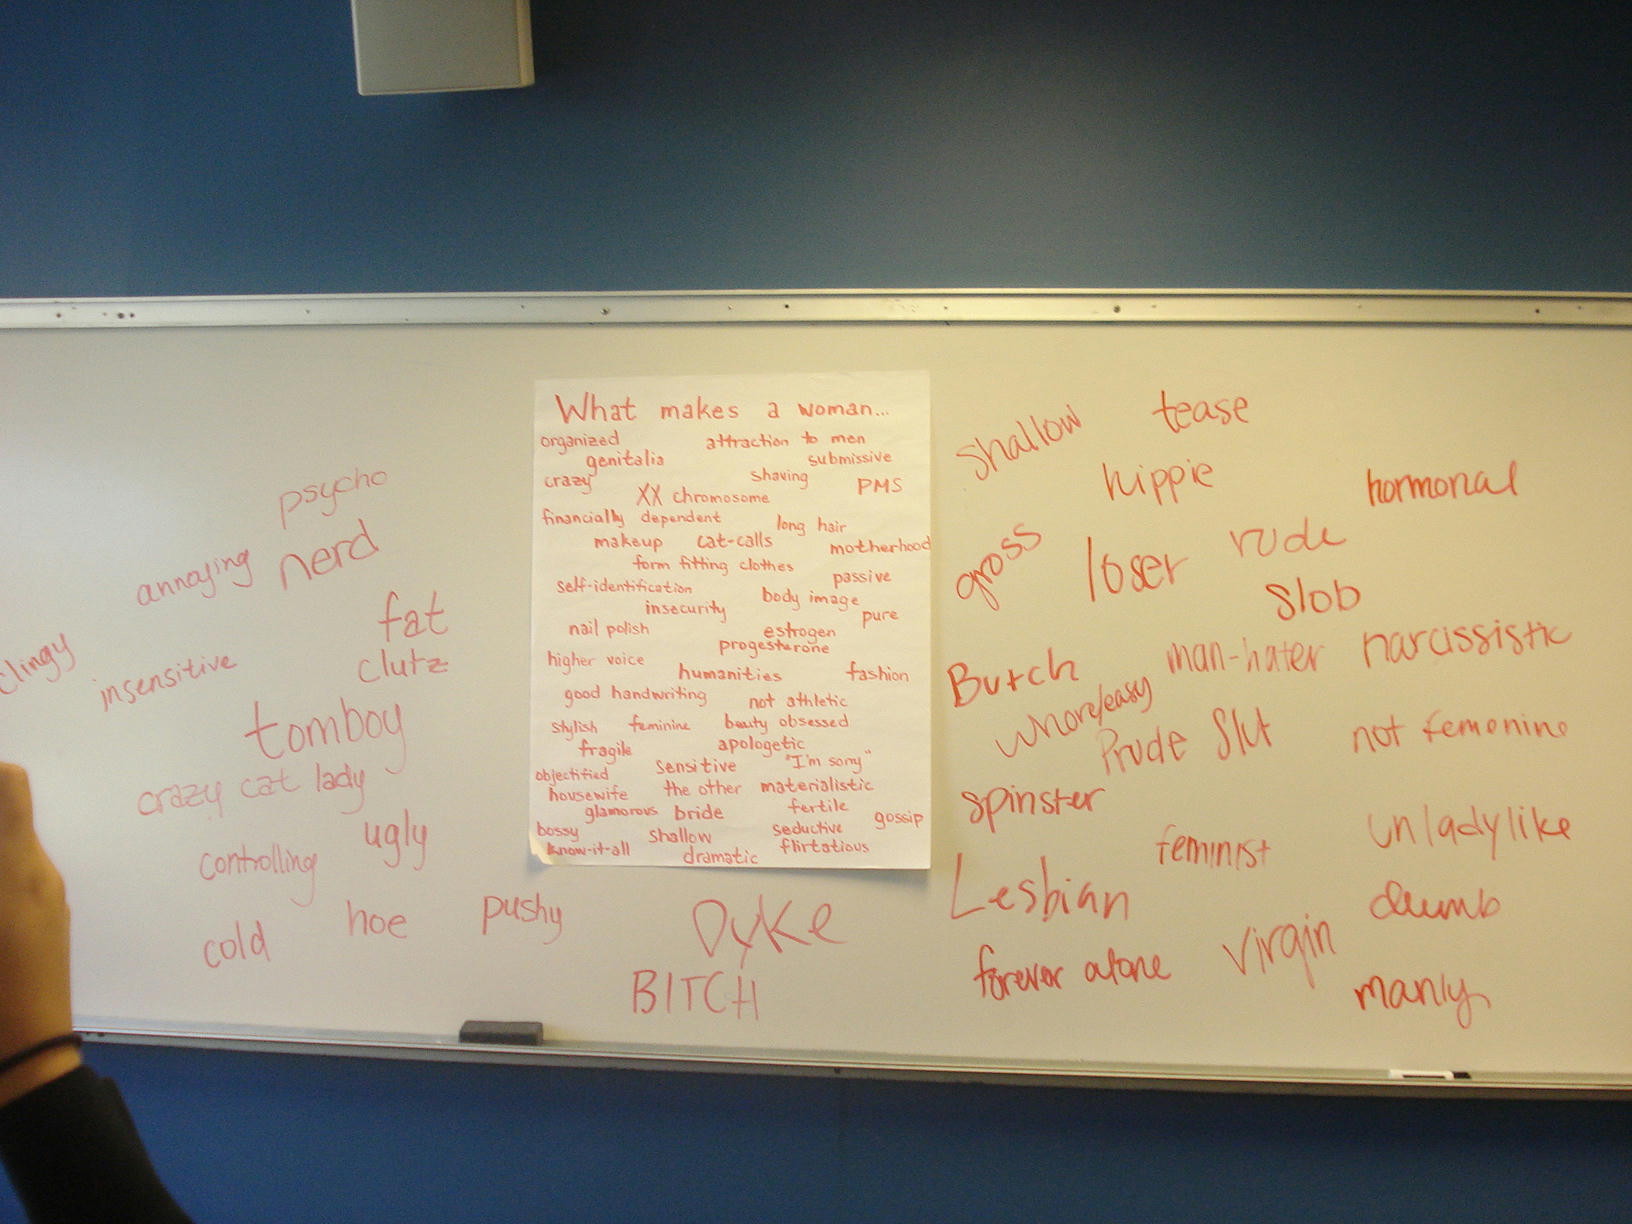 psycho
annoying nerd
fat
clingy insensitive clutz
tomboy
crazy cat lady
ugly
controlling
hoe pushy
cold
What makes a woman...
organized attraction to men
genitalia submissive
crazy shaving
XX chromosome PMS
financially dependent long hair
makeup cat-calls motherhood
form fitting clothes
self-identification passive
insecurity body image
nail polish estrogen pure
progesterone
higher voice humanities fashion
good handwriting not athletic
stylish feminine beauty obsessed
fragile apologetic
objectified sensitive "I'm sorry"
housewife the other materialistic
glamorous bride fertile
bossy shallow seductive gossip
know-it-all dramatic flirtatious
Dyke
BITCH
shallow tease
hippie hormonal
gross loser rude
slob
Butch man-hater narcissistic
whore/easy Prude Slut not femenine
spinster
feminist unladylike
Lesbian dumb
forever alone virgin
manly